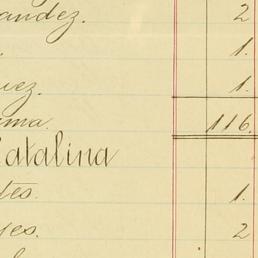 andez. 2
. 1.
uez. 1.
uma. 116.
Catalina
tes. 1.
yes. 2